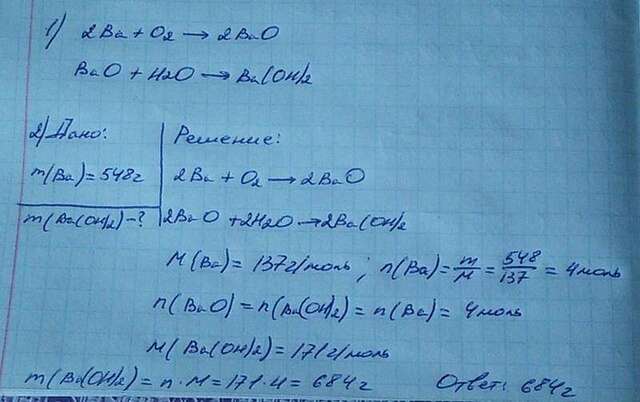 1) 2Ba + O2 → 2BaO
BaO + H2O → Ba(OH)2
2) Дано:
m(Ba) = 548 г
m(Ba(OH)2) - ?
Решение:
2Ba + O2 → 2BaO
2BaO + 2H2O → 2Ba(OH)2
M(Ba) = 137 г/моль ; n(Ba) = m/M = 548/137 = 4 моль
n(BaO) = n(Ba(OH)2) = n(Ba) = 4 моль
M(Ba(OH)2) = 171 г/моль
m(Ba(OH)2) = n · M = 171 · 4 = 684 г Ответ: 684 г